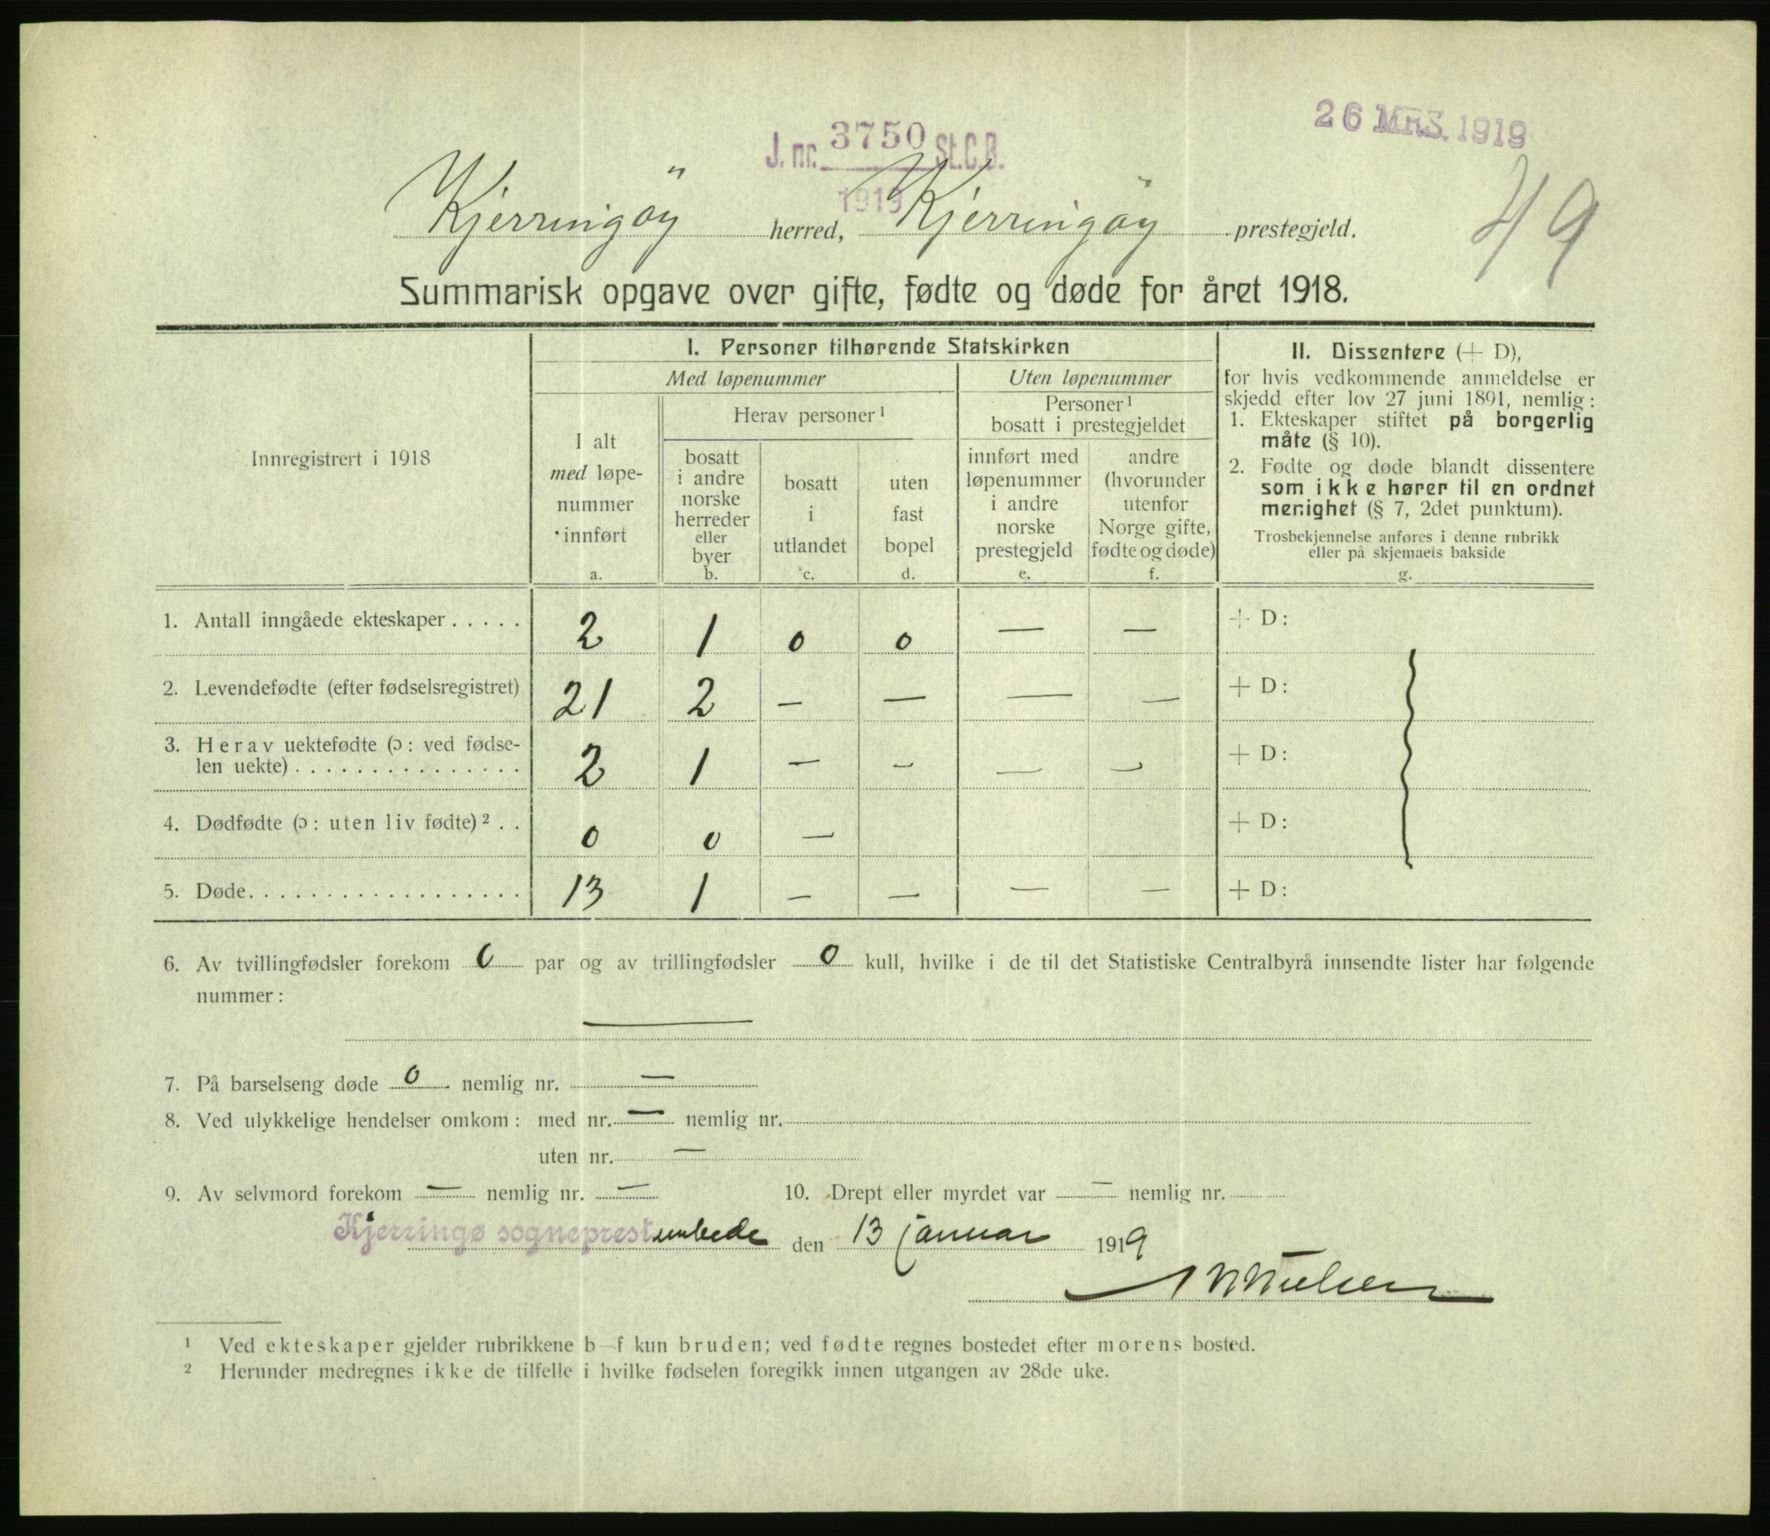 26 MRS. 1919
J. nr. 3750 St.C.B.
1919
49
Kjerringöy herred, Kjerringöy prestegjeld.
Summarisk opgave over gifte, fødte og døde for året 1918.
Innregistrert i 1918
I. Personer tilhørende Statskirken
Med løpenummer
Uten løpenummer
I alt
med løpe-
nummer
innført
a.
Herav personer ¹
bosatt
i andre
norske
herreder
eller
byer
b.
bosatt
i
utlandet
c.
uten
fast
bopel
d.
Personer ¹
bosatt i prestegjeldet
innført med
løpenummer
i andre
norske
prestegjeld
e.
andre
(hvorunder
utenfor
Norge gifte,
fødte og døde)
f.
II. Dissentere (+ D),
for hvis vedkommende anmeldelse er
skjedd efter lov 27 juni 1891, nemlig:
1. Ekteskaper stiftet på borgerlig
måte (§ 10).
2. Fødte og døde blandt dissentere
som ikke hører til en ordnet
menighet (§ 7, 2det punktum).
Trosbekjennelse anføres i denne rubrikk
eller på skjemaets bakside
g.
1. Antall inngåede ekteskaper ..... 2 1 0 0 — — + D:
2. Levendefødte (efter fødselsregistret) 21 2 — — — — + D:
3. Herav uektefødte (ɔ: ved fødse-
len uekte) ............... 2 1 — — — — + D:
4. Dødfødte (ɔ: uten liv fødte) ² .. 0 0 — + D:
5. Døde .................. 13 1 — — — — + D:
6. Av tvillingfødsler forekom 0 par og av trillingfødsler 0 kull, hvilke i de til det Statistiske Centralbyrå innsendte lister har følgende
nummer:
—
7. På barselseng døde 0 nemlig nr. —
8. Ved ulykkelige hendelser omkom: med nr. — nemlig nr.
uten nr. —
9. Av selvmord forekom — nemlig nr. — 10. Drept eller myrdet var — nemlig nr.
Kjerringø sogneprestembede den 13 januar 1919
¹ Ved ekteskaper gjelder rubrikkene b—f kun bruden; ved fødte regnes bostedet efter morens bosted.
² Herunder medregnes ikke de tilfelle i hvilke fødselen foregikk innen utgangen av 28de uke.